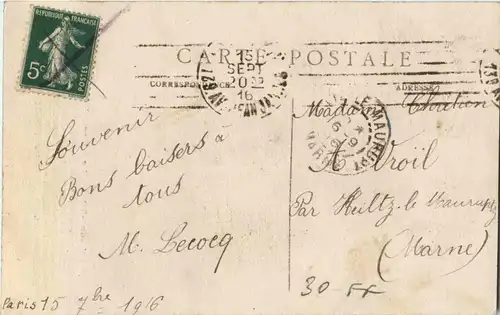 REPUBLIQUE FRANÇAISE
5c
POSTES
15
SEPT
16
CARTE POSTALE
CORRESPONDANCE
ADRESSE
Souvenir
Bons baisers à
tous
M. Lecocq
Madame Chrétien
A Vroïl
Par Heiltz-le-Maurupt
(Marne)
LE MAURUPT
MARNE
Paris 15 7bre 1916
30 FF